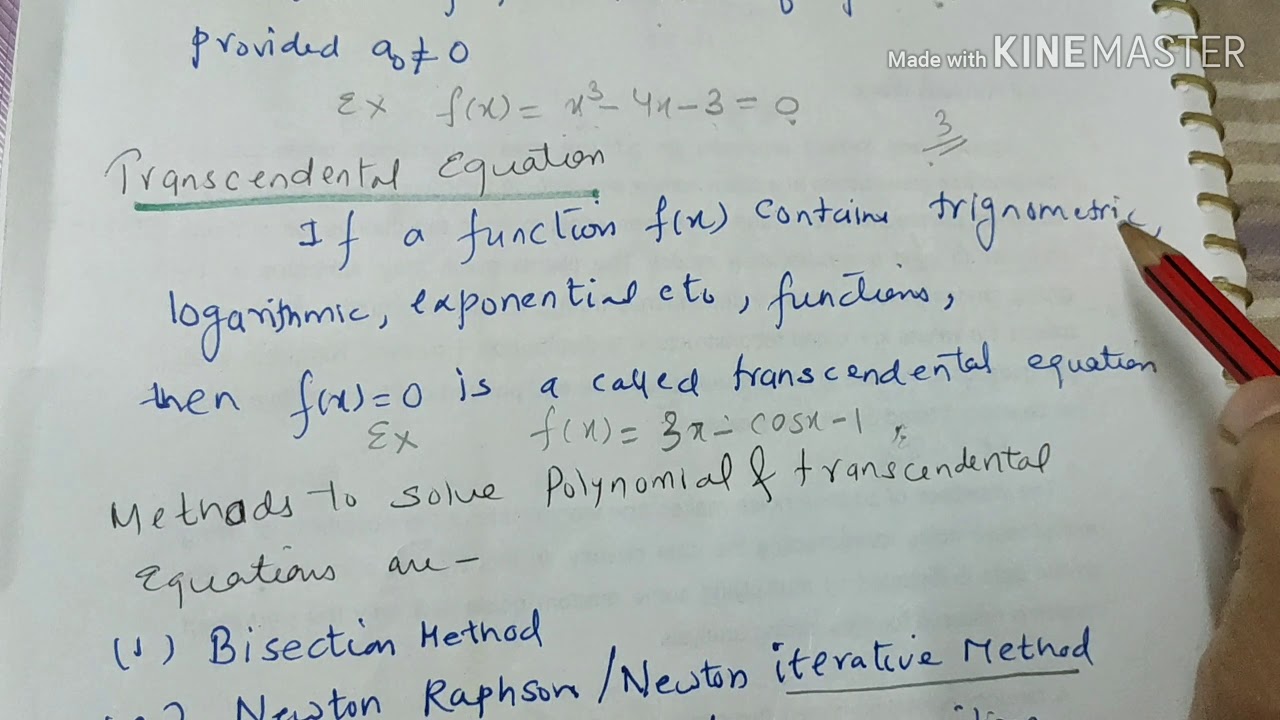 provided a₀≠0
Made with KINEMASTER
Ex f(x) = x³ - 4x - 3 = 0
3
Transcendental Equation
If a function f(x) contains trignometric,
logarithmic, exponential etc, functions,
then f(x) = 0 is a called transcendental equation
Ex f(x) = 3x - cosx - 1
Methods to solve Polynomial & transcendental
Equations are -
(1) Bisection Method
Newton Raphson / Newton iterative Method